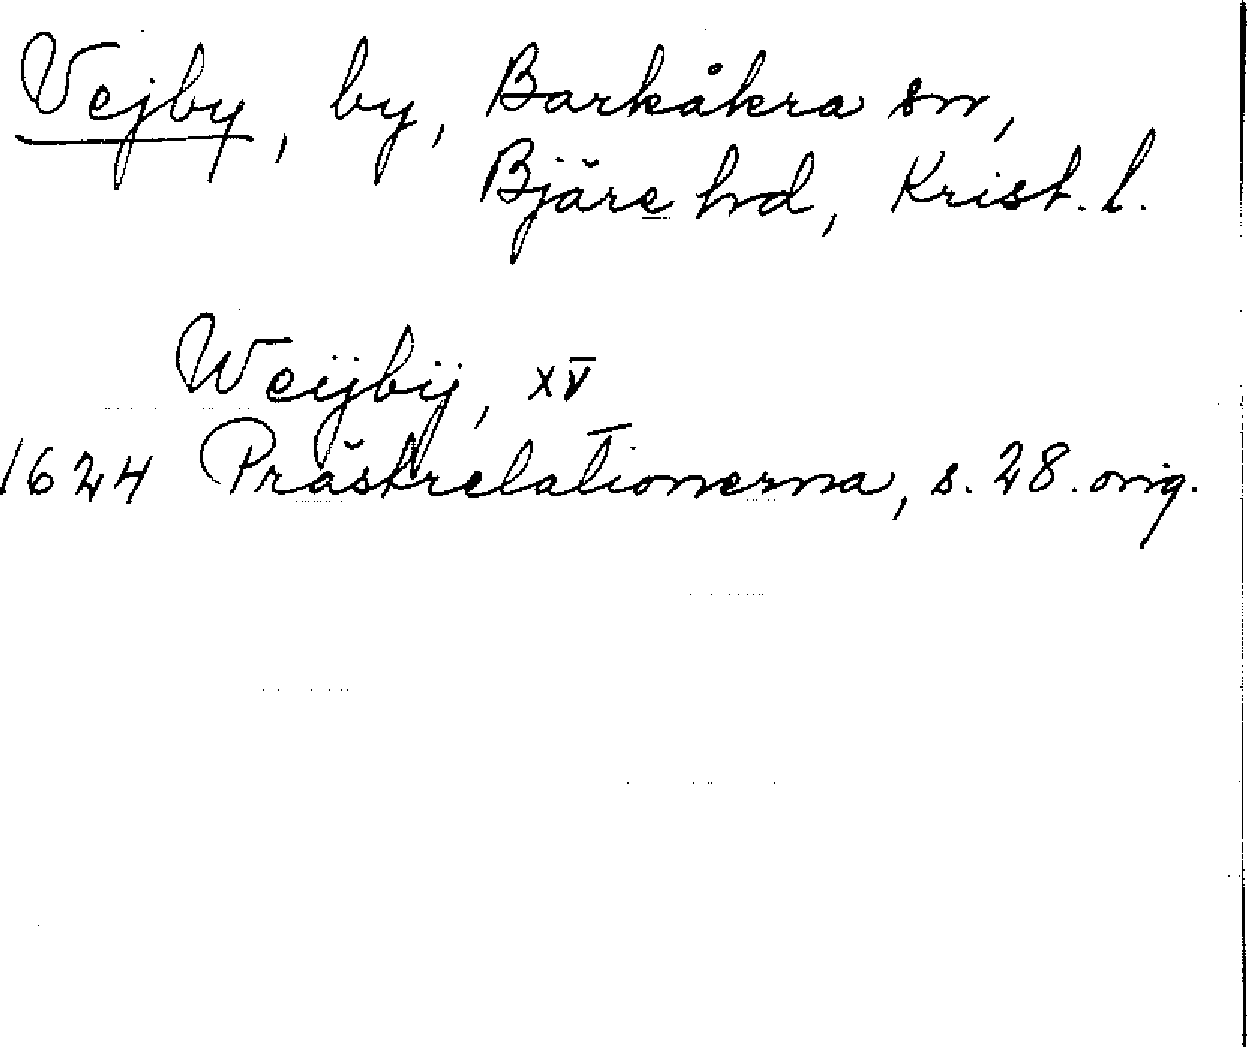 Vejby, by, Barkåkra sn,
Bjäre hd, Krist. l.
Weijbij, XV
1624 Prästrelationerna, s. 28. orig.